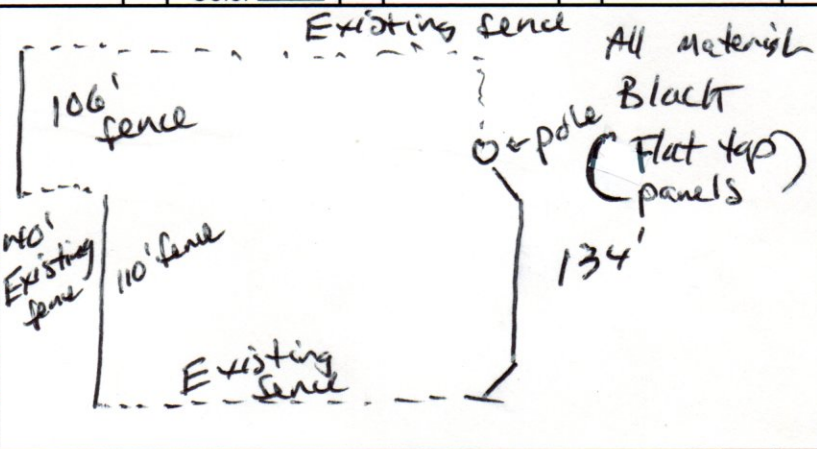 Existing fence
All Material
Black
(Flat top)
panels
106'
fence
pole
40'
Existing
fence
110' fence
134'
Existing
fence